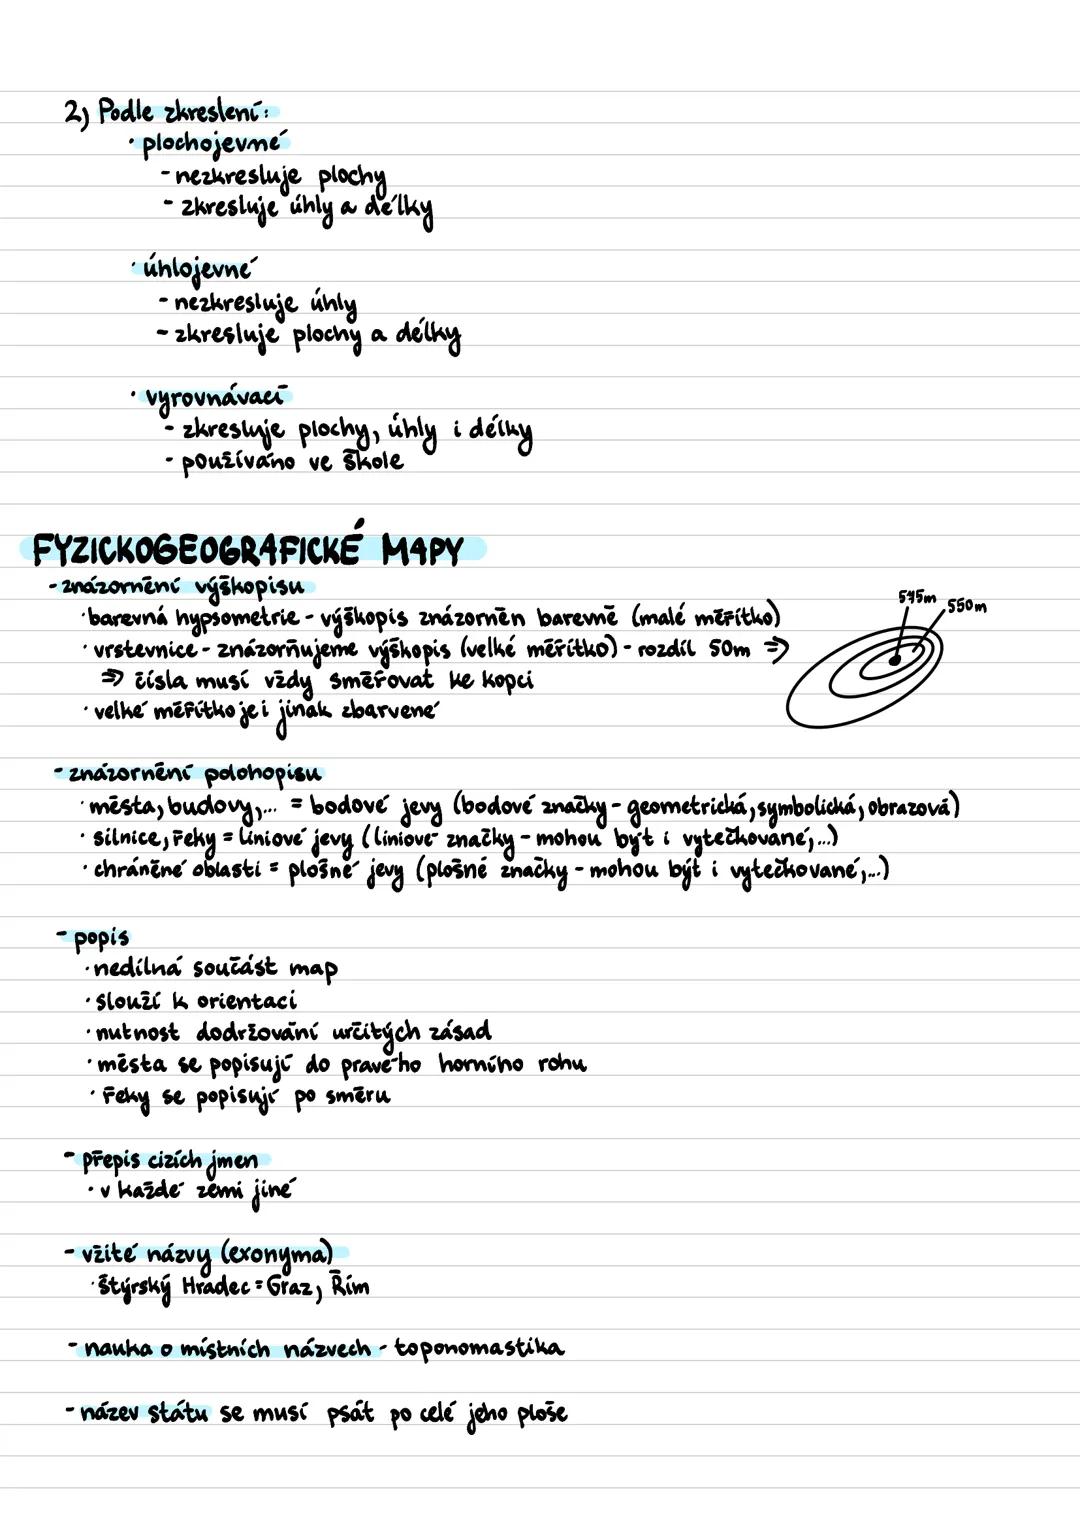 2) Podle zkreslení:
· plochojevné
- nezkresluje plochy
- zkresluje úhly a délky
· úhlojevné
- nezkresluje úhly
- zkresluje plochy a délky
· vyrovnávací
- zkresluje plochy, úhly i délky
- používáno ve škole
FYZICKOGEOGRAFICKÉ MAPY
- znázornění výškopisu
· barevná hypsometrie - výškopis znázorněn barevně (malé měřítko)
· vrstevnice - znázorňujeme výškopis (velké měřítko) - rozdíl 50m ⇒
⇒ čísla musí vždy směřovat ke kopci
· velké měřítko je i jinak zbarvené
575m 550m
- znázornění polohopisu
· města, budovy,... = bodové jevy (bodové značky - geometrická, symbolická, obrazová)
· silnice, řeky = liniové jevy (liniové značky - mohou být i vytečkované,...)
· chráněné oblasti = plošné jevy (plošné značky - mohou být i vytečkované,...)
- popis
· nedílná součást map
· slouží k orientaci
· nutnost dodržování určitých zásad
· města se popisují do pravého horního rohu
· řeky se popisují po směru
- přepis cizích jmen
· v každé zemi jiné
- vžité názvy (exonyma)
· štýrský Hradec = Graz, Řím
- nauka o místních názvech - toponomastika
- název státu se musí psát po celé jeho ploše